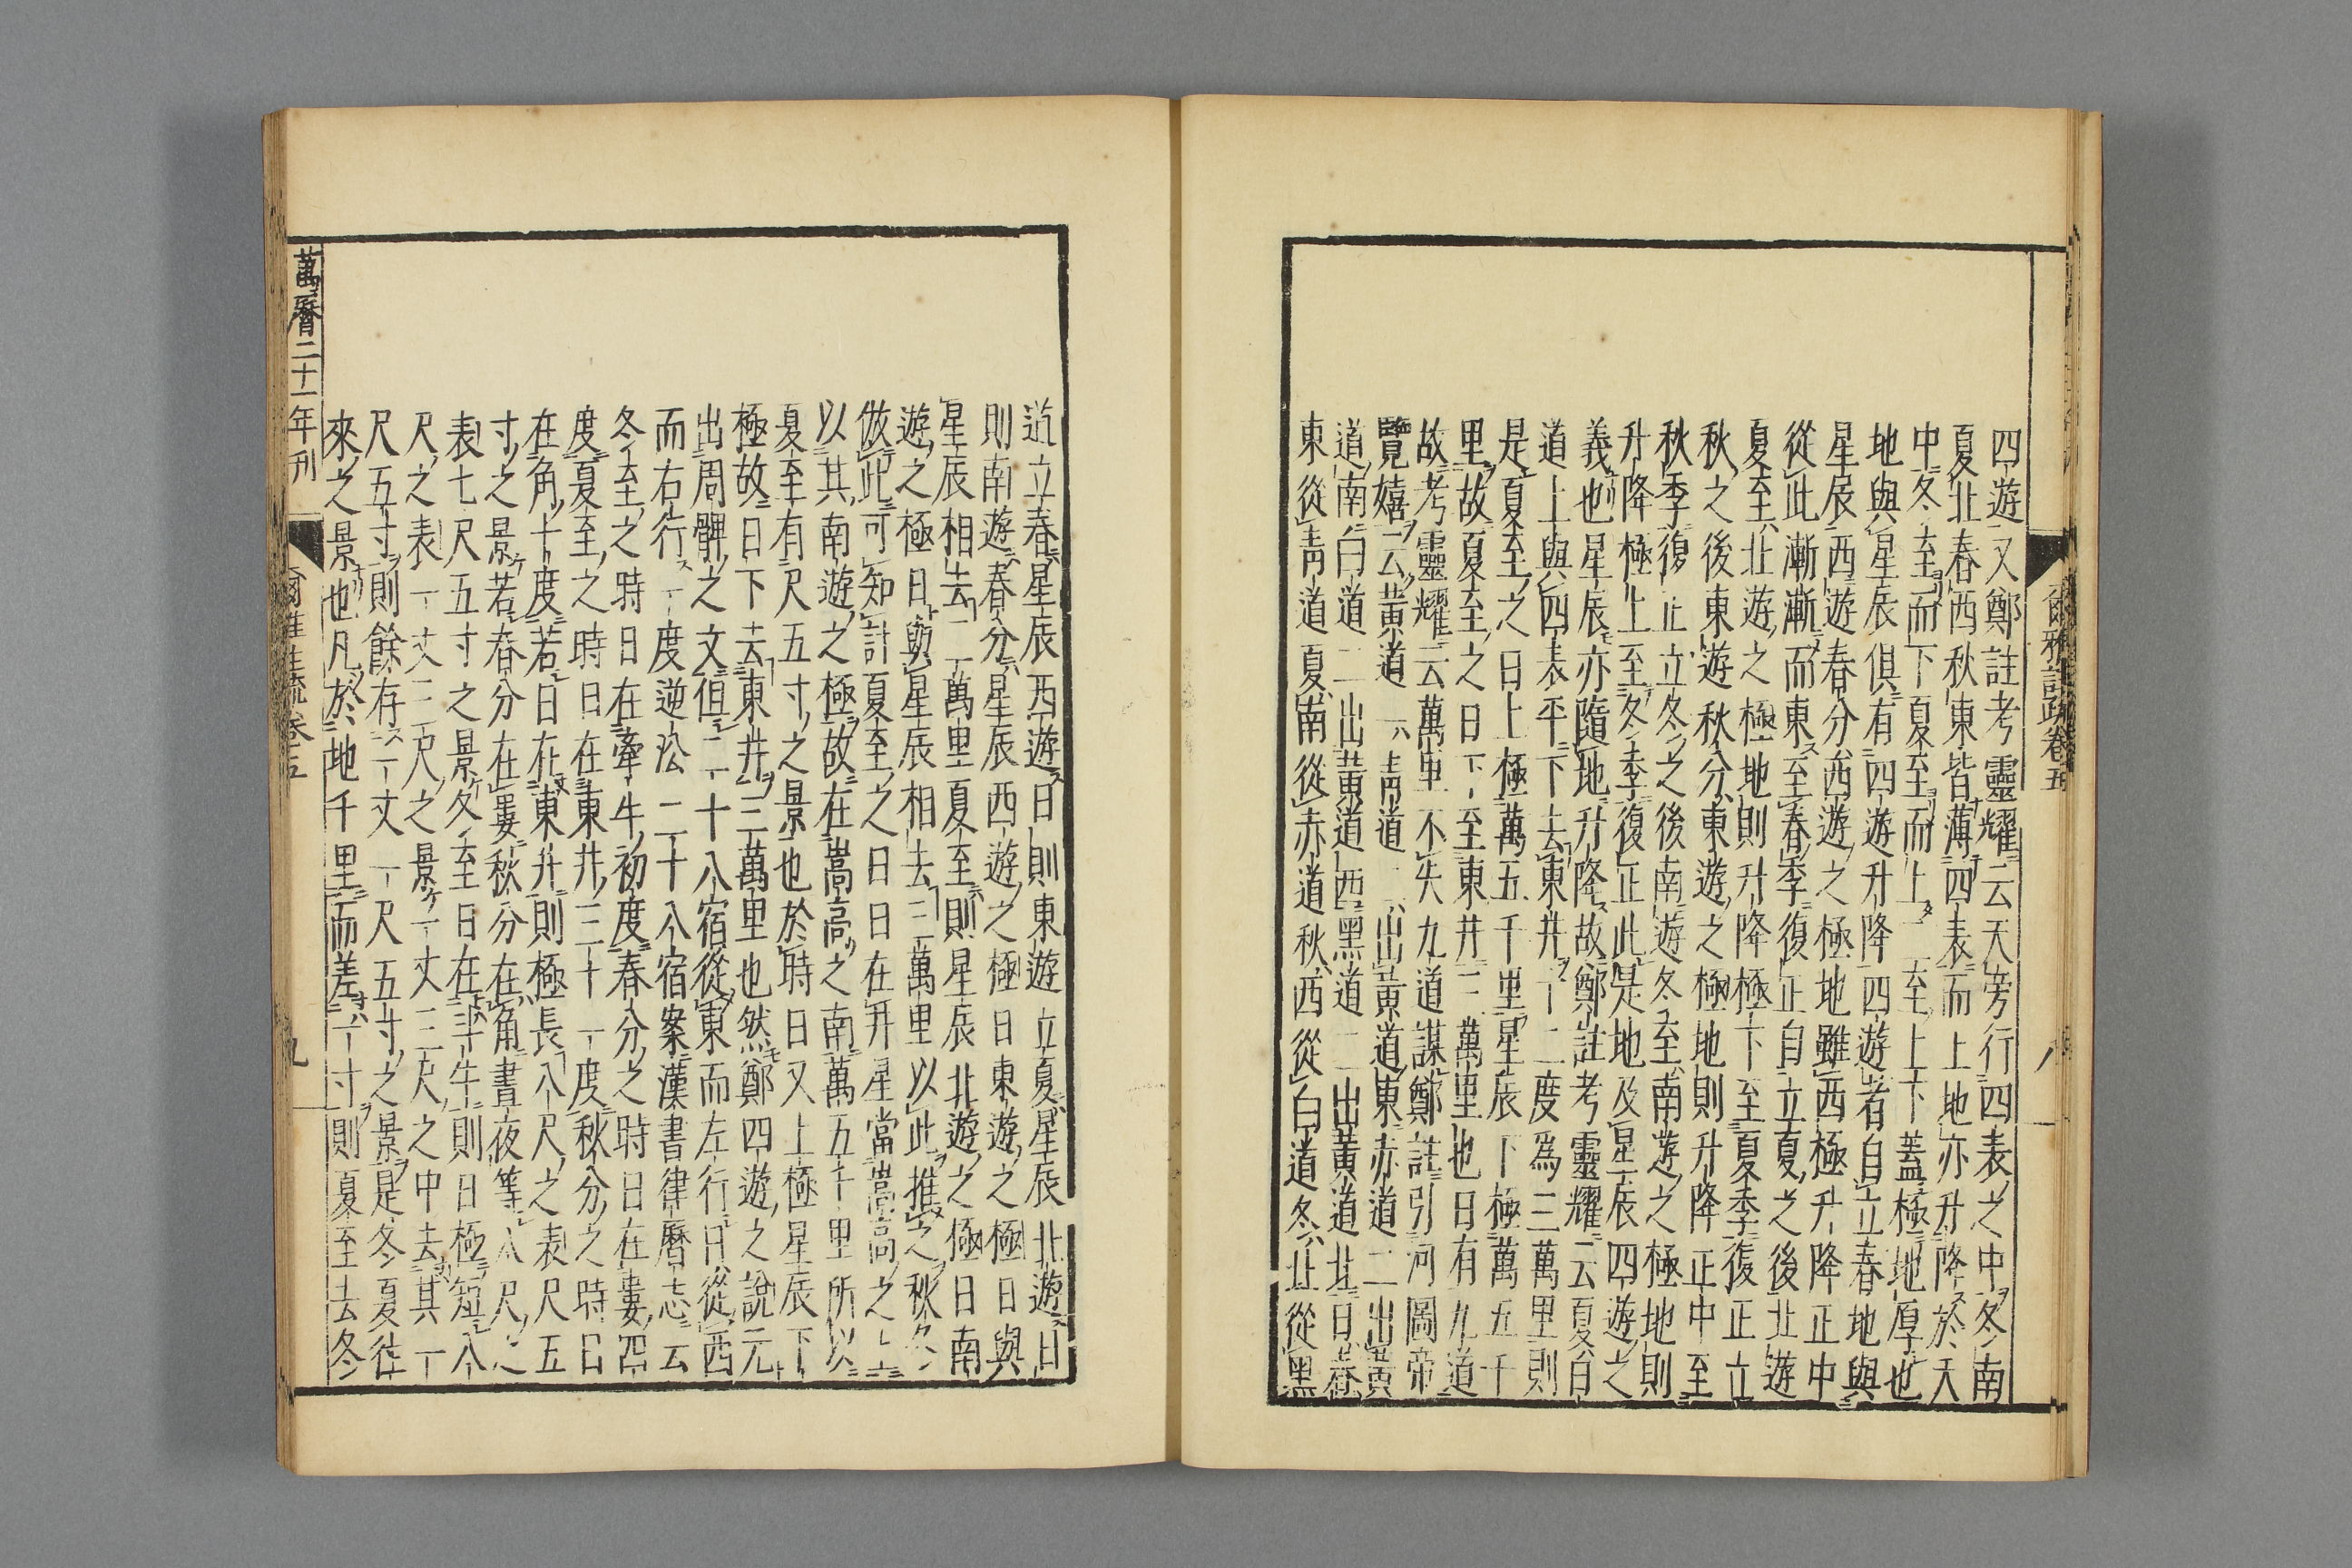 爾雅註疏卷五
八
四遊又鄭註考靈耀云天旁行四表之中冬南
夏北春西秋東皆薄四表而止地亦升降於天
中冬至而下夏至而上二至上下蓋極地厚也
地與星辰俱有四遊升降四遊者自立春地與
星辰西遊春分西遊之極地雖西極升降正中
從此漸漸而東至春季復正自立夏之後北遊
夏至北遊之極地則升降極下至夏季復正立
秋之後東遊秋分東遊之極地則升降正中至
秋季復正立冬之後南遊冬至南遊之極地則
升降極上至冬季復正此是地及星辰四遊之
義也星辰亦隨地升降故鄭註考靈耀云夏日
道上與四表平下去東井十二度為三萬里則
是夏至之日上極萬五千里星辰下極萬五千
里故夏至之日下至東井三萬里也日有九道
故考靈耀云萬里不失九道謀鄭註引河圖帝
覽嬉云黃道一青道二出黃道東赤道二出黃
道南白道二出黃道西黑道二出黃道北日春
東從青道夏南從赤道秋西從白道冬北從黑
道立春星辰西遊日則東遊立夏星辰北遊日
則南遊春分星辰西遊之極日東遊之極日與
星辰相去二萬里夏至則星辰北遊之極日南
遊之極日與星辰相去三萬里以此推之秋冬
倣此可知計夏至之日日在井星當嵩高之上
以其南遊之極故在嵩高之南萬五千里所以
夏至有尺五寸之景也於時日又上極星辰下
極故日下去東井三萬里也然鄭四遊之說元
出周髀之文但二十八宿從東而左行日從西
而右行一度逆㳂二十八宿案漢書律曆志云
冬至之時日在牽牛初度春分之時日在婁四
度夏至之時日在東井三十一度秋分之時日
在角十度若日在東井則極長八尺之表尺五
寸之景若春分在婁秋分在角晝夜等八尺之
表七尺五寸之景冬至日在斗牛則日極短八
尺之表一丈三尺之景一丈三尺之中去其一
尺五寸則餘存一丈一尺五寸之景是冬夏往
來之景也凡於地千里而差一寸則夏至去冬
萬曆二十一年刊
爾雅註疏卷五
九